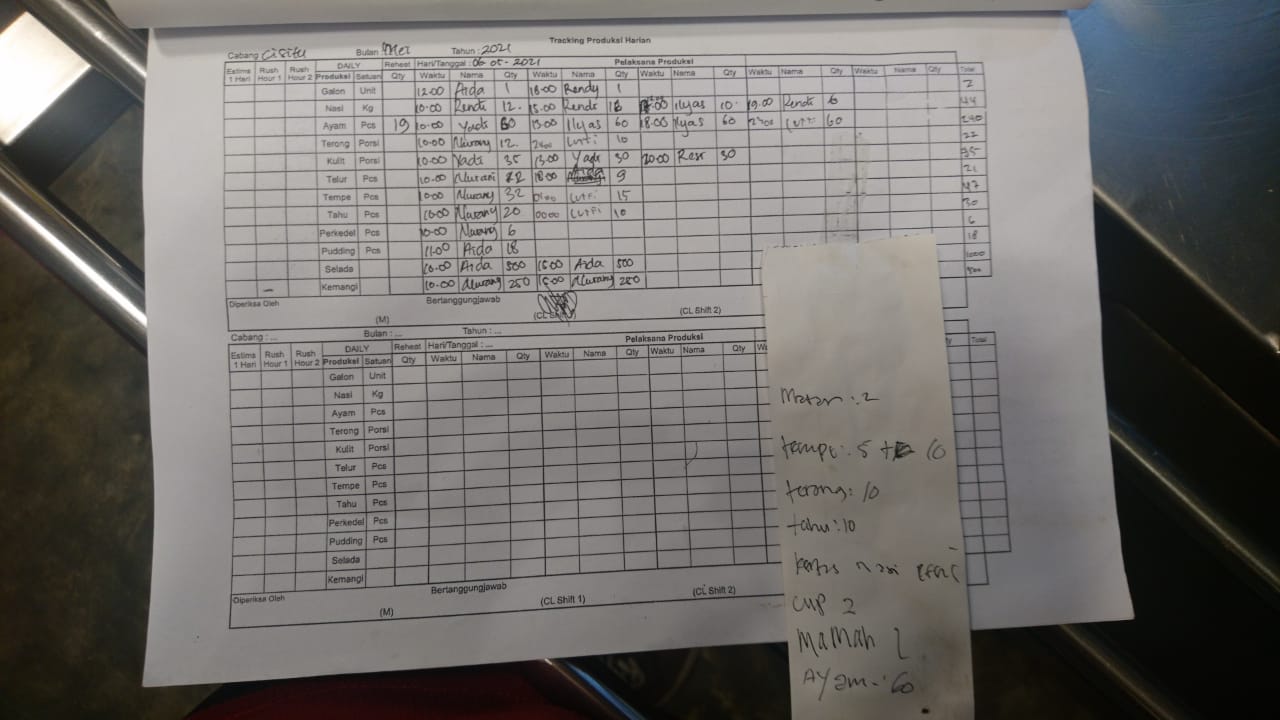 Tracking Produksi Harian
Cabang Cisitu Bulan Mei Tahun : 2021
Estima 1 Hari Rush Hour 1 Rush Hour 2 DAILY Rehest Hari/Tanggal : 06-05-2021 Pelaksana Produksi
Produksi Satuan Qty Waktu Nama Qty Waktu Nama Qty Waktu Nama Qty Waktu Nama Qty Waktu Nama Qty Total
Galon Unit 12.00 Aida 1 18.00 Rendy 1 2
Nasi Kg 10.00 Rendi 12. 15.00 Rendi Ilyas 10. 19.00 Rendi 6 44
Ayam Pcs 19 10.00 Yadi 60 13.00 Ilyas 60 18.00 Ilyas 60 Lutfi 60 240
Terong Porsi 10.00 Nurang 12. Lutfi 10 22
Kulit Porsi 10.00 Yadi 35 13.00 Yadi 30 20.00 Resr 30 95
Telur Pcs 10.00 18.00 9 21
Tempe Pcs 10.00 Nurang 32 Lutfi 15 47
Tahu Pcs 10.00 Nurang 20 00.00 Lutfi 10 30
Perkedel Pcs 10.00 Nurang 6 6
Pudding Pcs 11.00 Aida 18 18
Selada 10.00 Aida 500 15.00 Aida 500 1000
Kemangi 10.00 Nurang 250 15.00 Nurang 250 500
Diperiksa Oleh Bertanggungjawab
(M) (CL Shift 1) (CL Shift 2)
Cabang : ... Bulan : ... Tahun : ...
Estima 1 Hari Rush Hour 1 Rush Hour 2 DAILY Rehest Hari/Tanggal : ... Pelaksana Produksi
Produksi Satuan Qty Waktu Nama Qty Waktu Nama Qty Waktu Nama Qty Total
Galon Unit
Nasi Kg
Ayam Pcs
Terong Porsi
Kulit Porsi
Telur Pcs
Tempe Pcs
Tahu Pcs
Perkedel Pcs
Pudding Pcs
Selada
Kemangi
Diperiksa Oleh Bertanggungjawab
(M) (CL Shift 1) (CL Shift 2)
: 2
tempe : 5 + 10
terong : 10
tahu : 10
kertas nasi
cup 2
Mamah 2
Ayam : 60